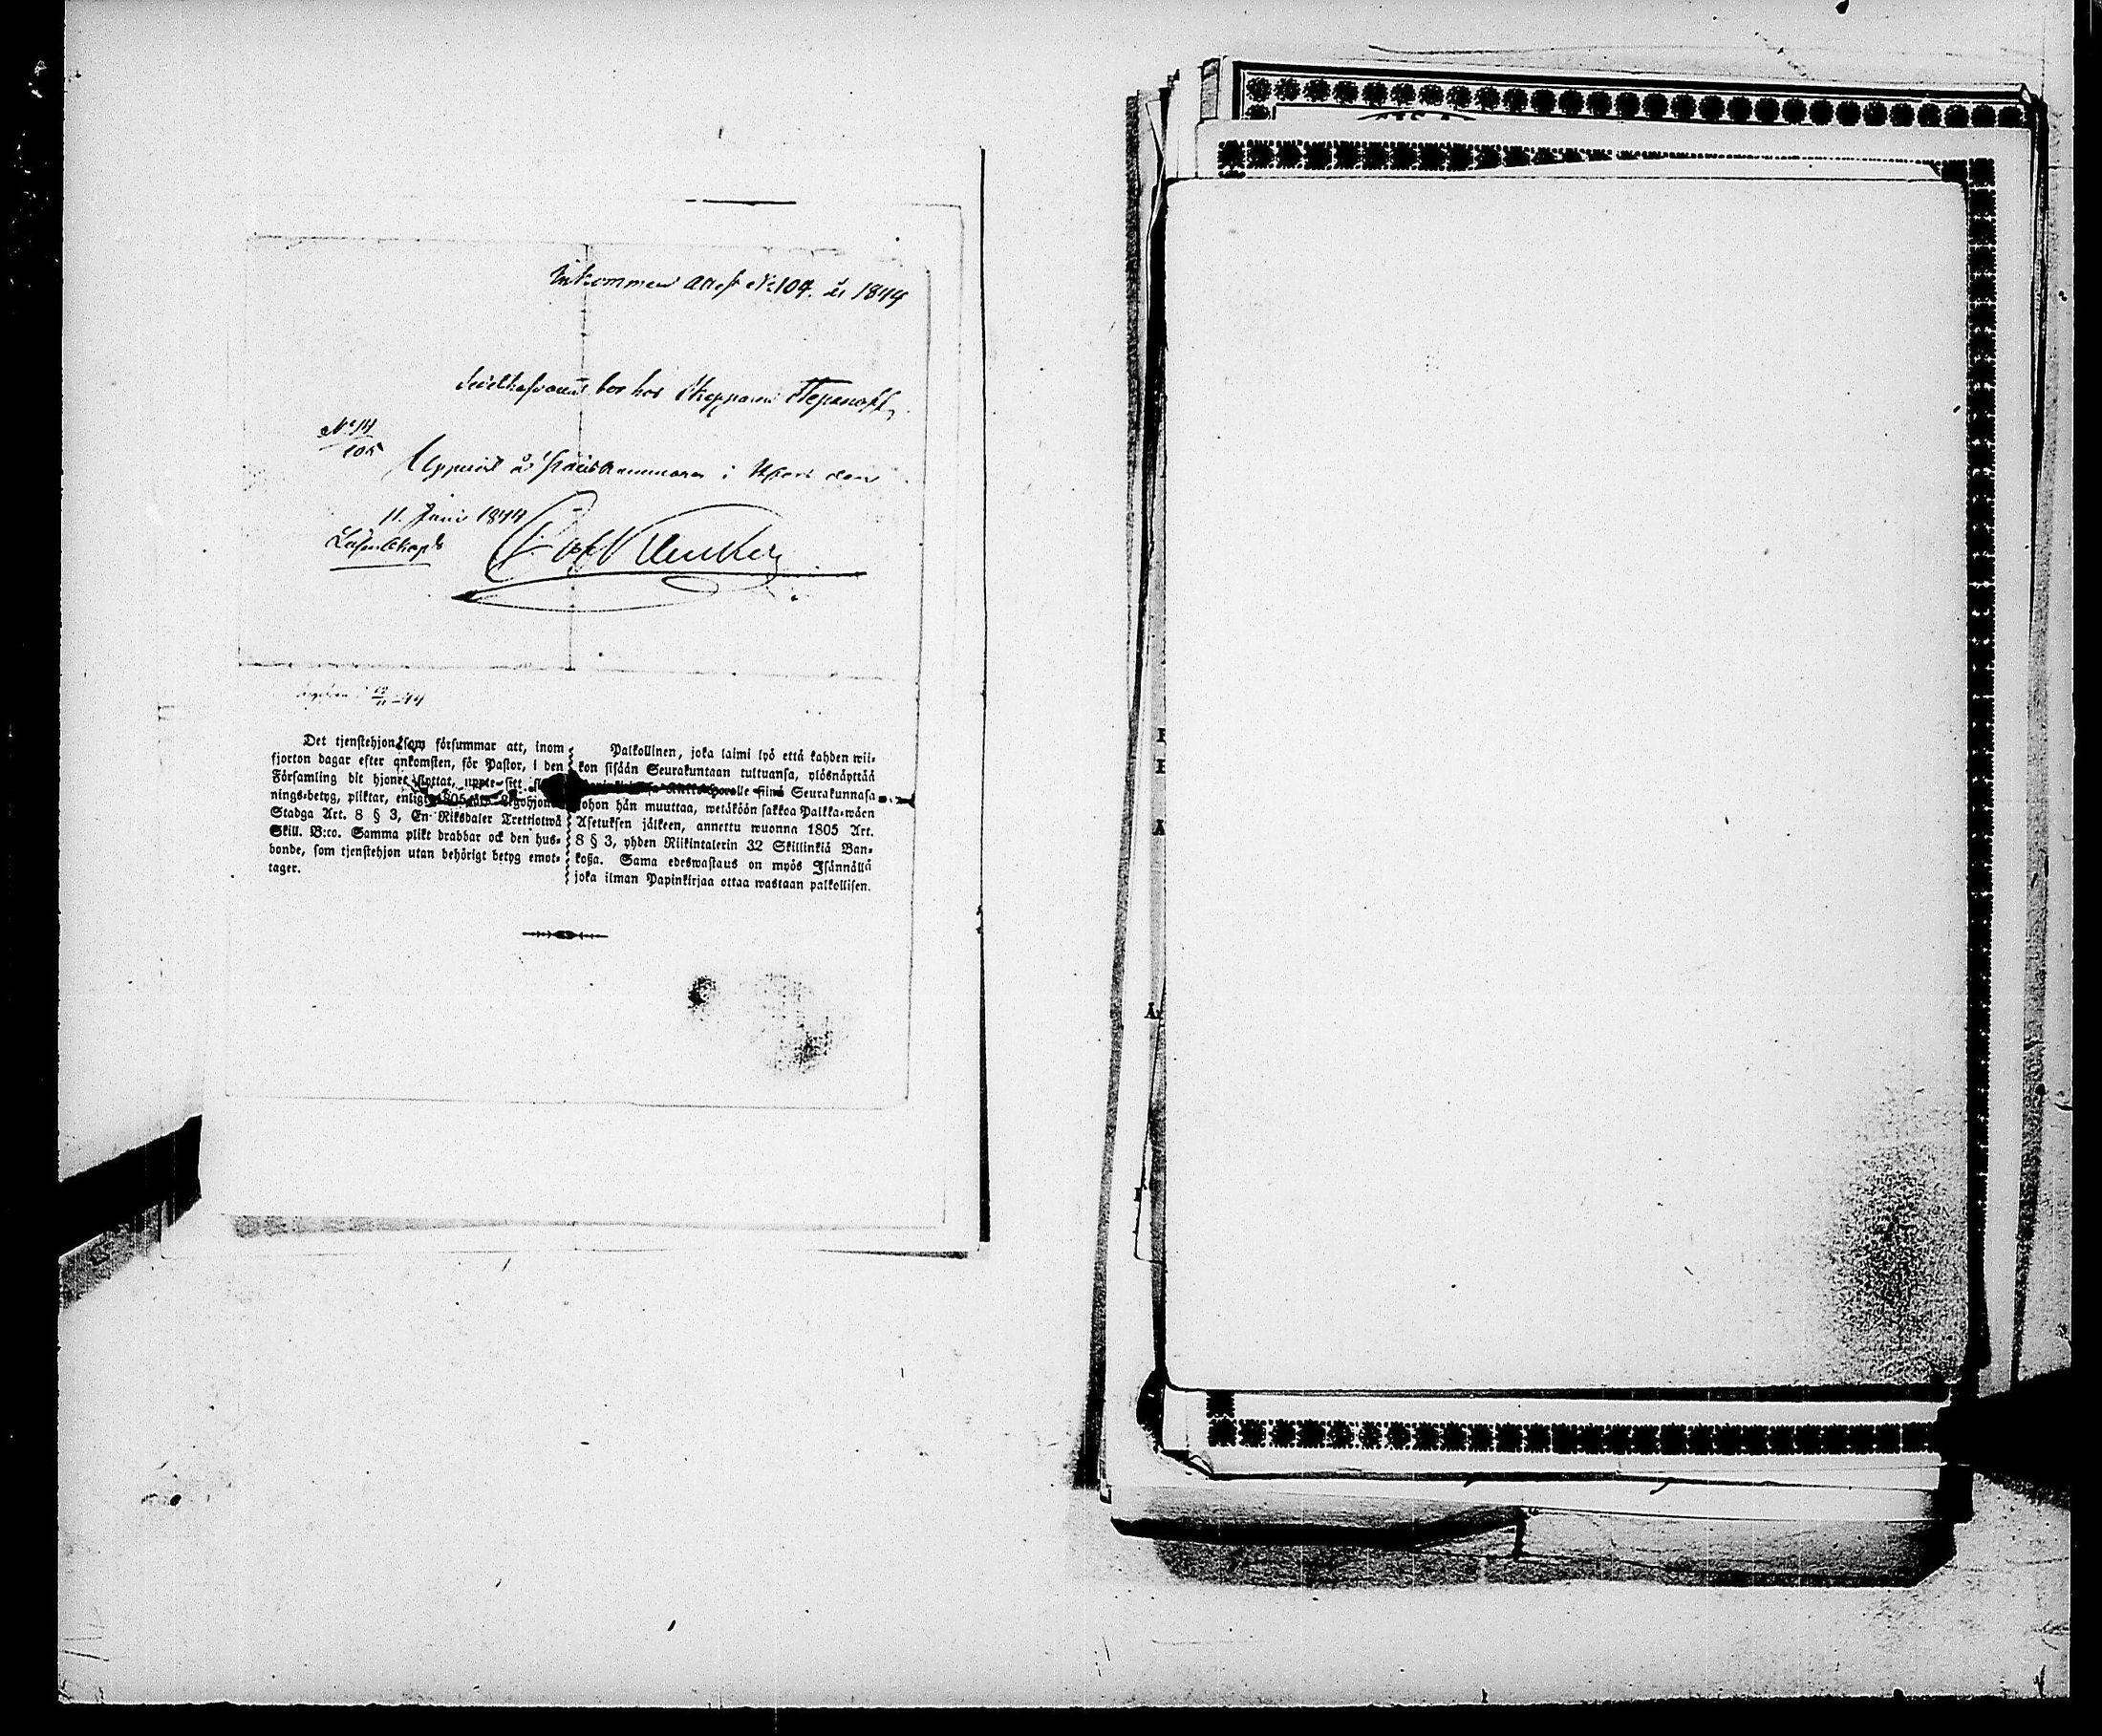 Inkommen attest No 104. år 1844
bor hos Skepparen Stepanoff
No 14
105
Uppvist å Poliskammaren i H:fors den
11. Juni 1844
Det tjenstehjon, som försummar att, inom
fjorton dagar efter ankomsten, för Pastor, i den
Församling dit hjonet flyttat, uppte sitt
nings-betyg, pliktar, enligt 1805 års Legohjons
Stadga Art. 8 § 3, En Riksdaler Trettiotwå
Skill. B:co. Samma plikt drabbar ock den hus-
bonde, som tjenstehjon utan behörigt betyg emot-
tager.
Palkollinen, joka laimi lyö että kahden wii-
kon sisään Seurakuntaan tultuansa, ylösnäyttää
siinä Seurakunnasa
johon hän muuttaa, wetäköön sakkoa Palkka-wäen
Asetuksen jälkeen, annettu wuonna 1805 Art.
8 § 3, yhden Riikintalerin 32 Skillinkiä Ban-
koßa. Sama edeswastaus on myös Isännällä
joka ilman Papinkirjaa ottaa wastaan palkollisen.